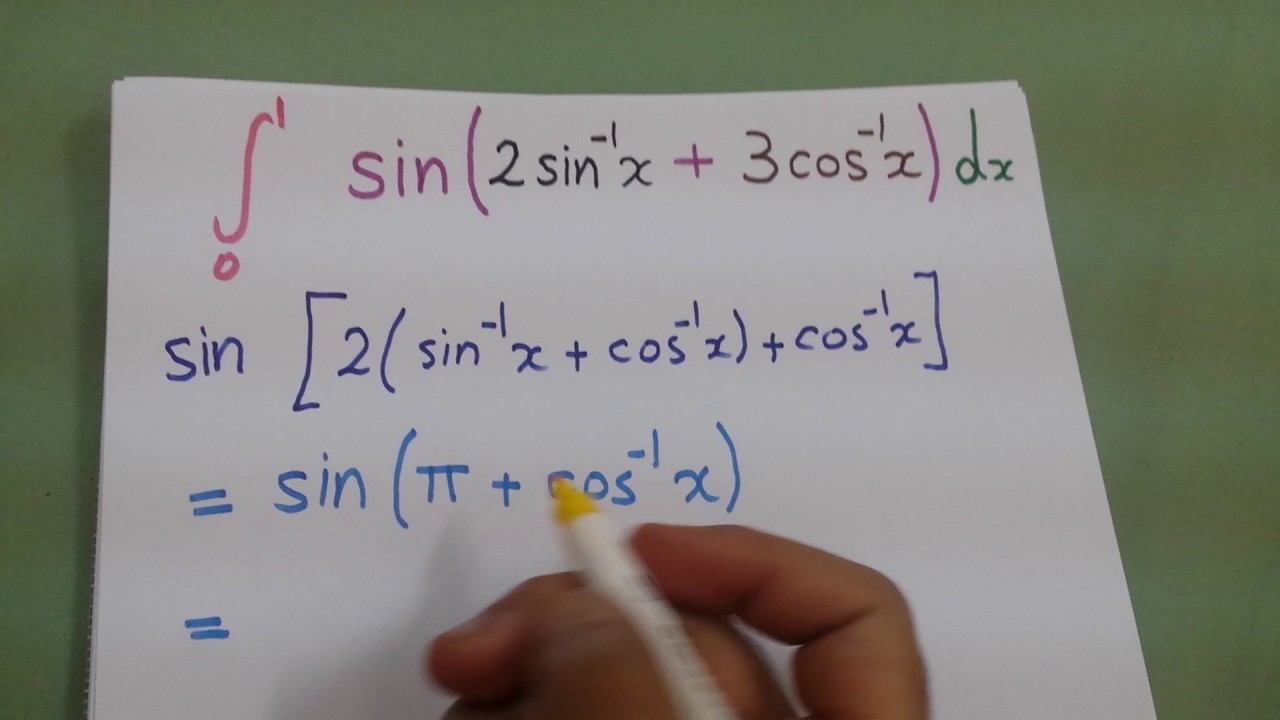 ∫₀¹ sin(2sin⁻¹x + 3cos⁻¹x)dx
sin [2(sin⁻¹x + cos⁻¹x) + cos⁻¹x]
= sin(π + cos⁻¹x)
=